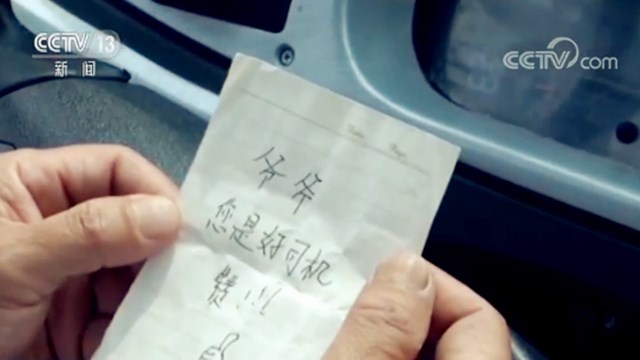 CCTV 13
新闻
CCTV.com
爷爷
您是好司机
赞!!!